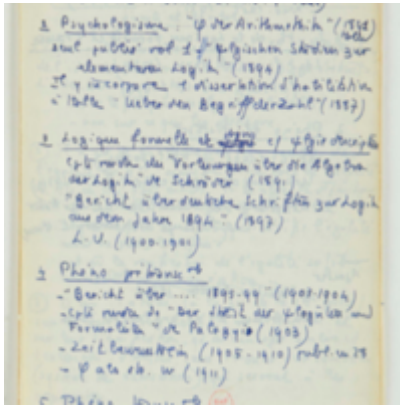 2 Psychologisme : "φ der Arithmetik" (1891)
seul publié vol 1 + "ψlgischen Studien zur
elementaren Logik" (1894)
Il y incorpore 1 dissertation d'habilitation
à Halle "Ueber den Begriff der Zahl" (1887)
3 Logique formelle et ψlgie
cpte rendu des "Vorlesungen über die Algebra
der Logik" de Schröder (1891)
"Bericht über deutsche Schriften zur Logik
aus dem Jahre 1894" (1897)
L. U. (1900-1901)
4 Phéno
- "Bericht über .... 1895-99" (1903-1904)
- cpte rendu de "Der Streit der ψlogisten und
Formalisten" de Palagyi (1903)
- Zeitbewusstsein (1905-1910) publ. en 28
- φ als str. W (1911)
5 Phéno